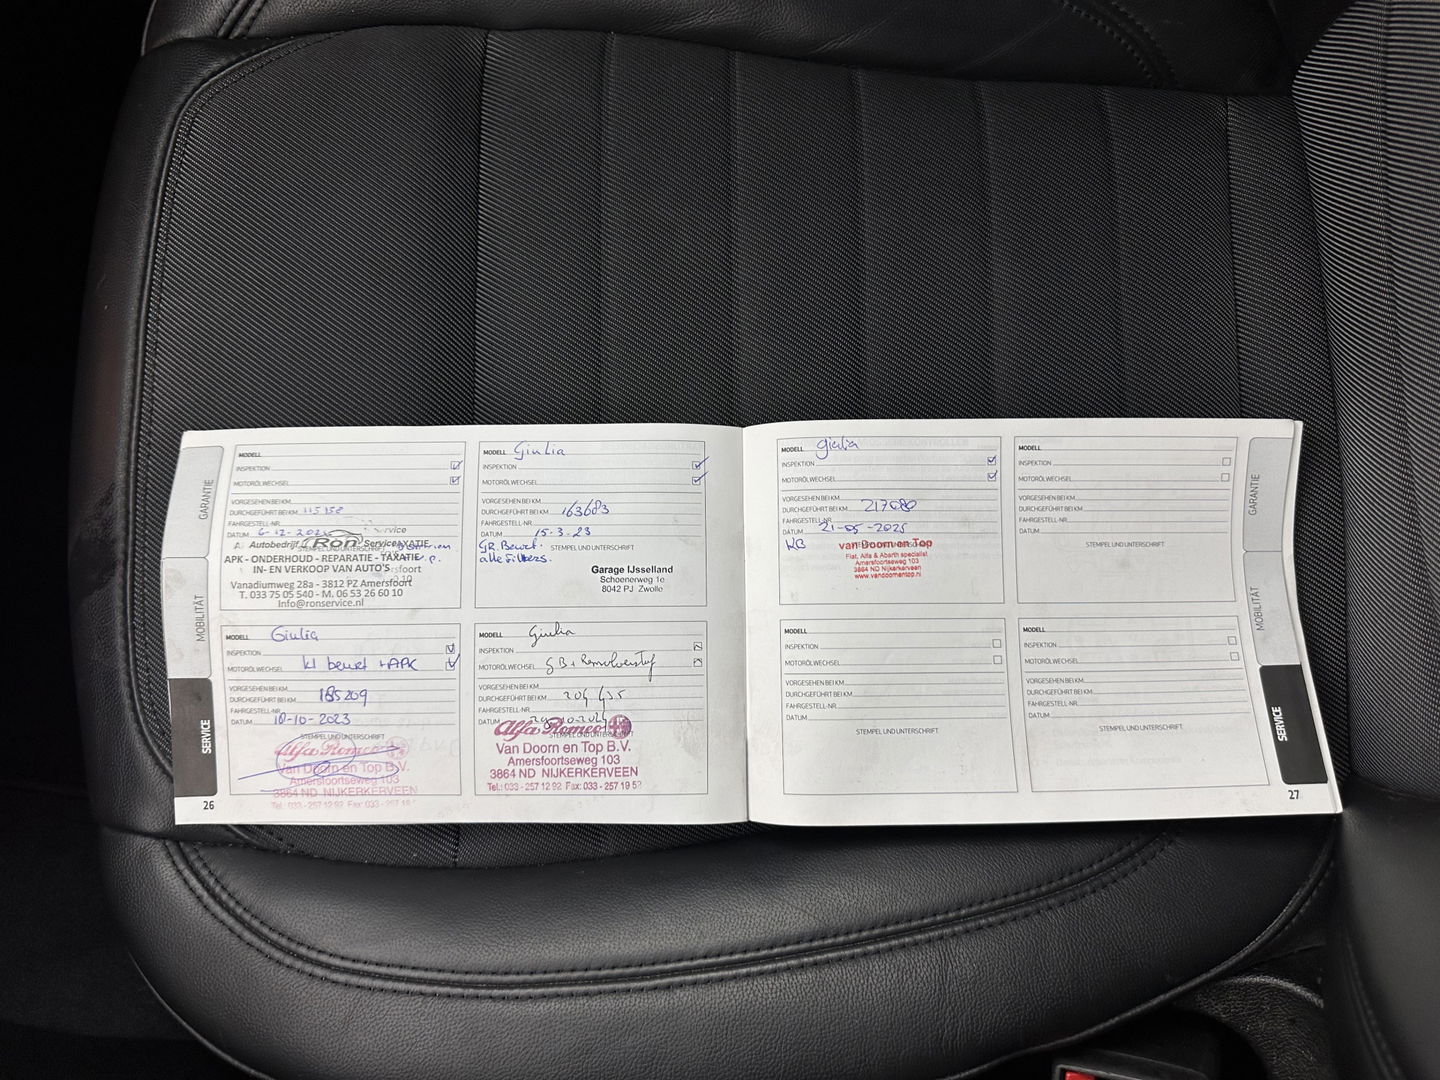 GARANTIE
MOBILITÄT
SERVICE
26
MODELL
INSPEKTION
MOTORÖLWECHSEL
VORGESEHEN BEI KM
DURCHGEFÜHRT BEI KM 115158
FAHRGESTELL-NR.
DATUM 6-12-2021
Autobedrijf Ron Service
APK - ONDERHOUD - REPARATIE - TAXATIE
IN- EN VERKOOP VAN AUTO'S
Vanadiumweg 28a - 3812 PZ Amersfoort
T. 033 75 05 540 - M. 06 53 26 60 10
Info@ronservice.nl
MODELL Giulia
INSPEKTION
MOTORÖLWECHSEL
VORGESEHEN BEI KM
DURCHGEFÜHRT BEI KM 163683
FAHRGESTELL-NR.
DATUM 15-3-23
GR. Beurt.
alle filters.
STEMPEL UND UNTERSCHRIFT
Garage IJsselland
Schoenerweg 1e
8042 PJ Zwolle
MODELL Giulia
INSPEKTION
MOTORÖLWECHSEL kl beurt + APK
VORGESEHEN BEI KM
DURCHGEFÜHRT BEI KM 185209
FAHRGESTELL-NR.
DATUM 18-10-2023
STEMPEL UND UNTERSCHRIFT
Alfa Romeo
Van Doorn en Top B.V.
Amersfoortseweg 103
3864 ND NIJKERKERVEEN
Tel.: 033 - 257 12 92 Fax: 033 - 257 19
MODELL Giulia
INSPEKTION
MOTORÖLWECHSEL GB + Remvloeistof
VORGESEHEN BEI KM
DURCHGEFÜHRT BEI KM
FAHRGESTELL-NR.
DATUM
STEMPEL UND UNTERSCHRIFT
Alfa Romeo
Van Doorn en Top B.V.
Amersfoortseweg 103
3864 ND NIJKERKERVEEN
Tel.: 033 - 257 12 92 Fax: 033 - 257 19 52
MODELL Giulia
INSPEKTION
MOTORÖLWECHSEL
VORGESEHEN BEI KM
DURCHGEFÜHRT BEI KM 217080
FAHRGESTELL-NR.
DATUM 21-05-2025
KB
STEMPEL UND UNTERSCHRIFT
van Doorn en Top
Fiat, Alfa & Abarth specialist
Amersfoortseweg 103
3864 ND Nijkerkerveen
www.vandoornentop.nl
MODELL
INSPEKTION
MOTORÖLWECHSEL
VORGESEHEN BEI KM
DURCHGEFÜHRT BEI KM
FAHRGESTELL-NR.
DATUM
STEMPEL UND UNTERSCHRIFT
MODELL
INSPEKTION
MOTORÖLWECHSEL
VORGESEHEN BEI KM
DURCHGEFÜHRT BEI KM
FAHRGESTELL-NR.
DATUM
STEMPEL UND UNTERSCHRIFT
MODELL
INSPEKTION
MOTORÖLWECHSEL
VORGESEHEN BEI KM
DURCHGEFÜHRT BEI KM
FAHRGESTELL-NR.
DATUM
STEMPEL UND UNTERSCHRIFT
GARANTIE
MOBILITÄT
SERVICE
27